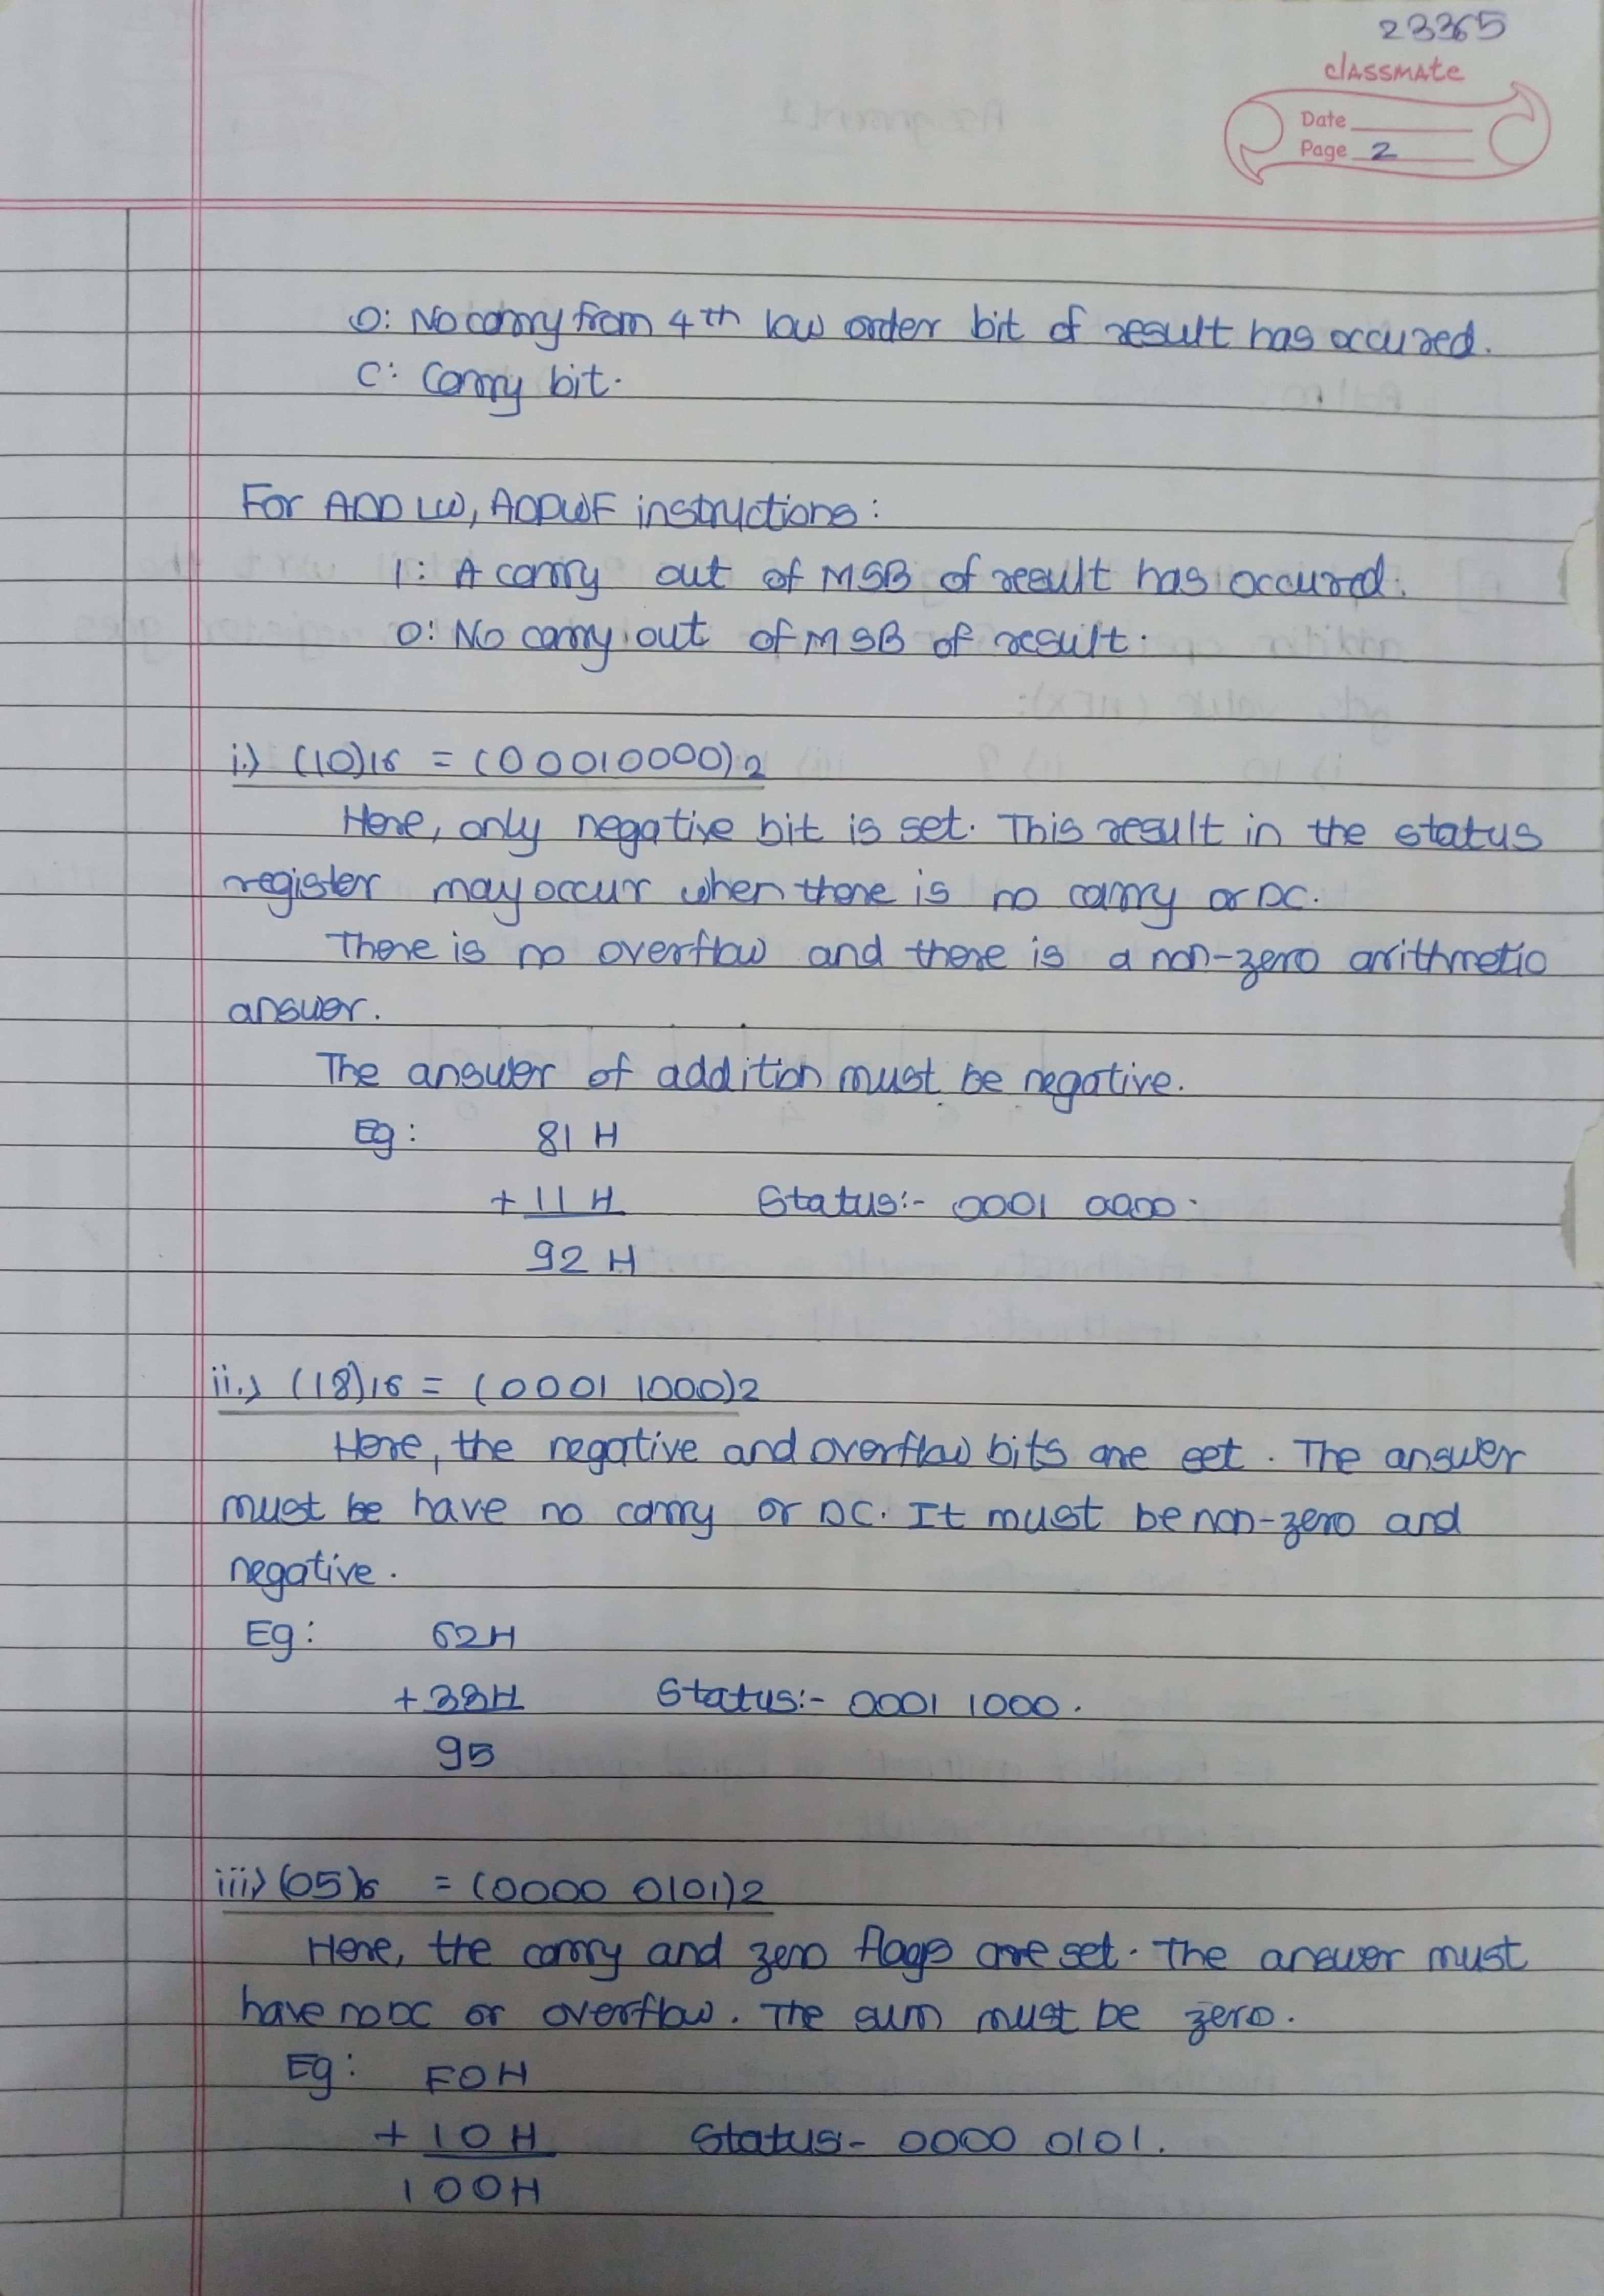 23365
classmate
Date
Page 2
0: No carry from 4th low order bit of result has occured.
C: Carry bit.
For ADD LW, ADDWF instructions:
1: A carry out of MSB of result has occured.
0: No carry out of MSB of result.
i.) (10)16 = (00010000)2
Here, only negative bit is set. This result in the status
register may occur when there is no carry or DC.
There is no overflow and there is a non-zero arithmetic
answer.
The answer of addition must be negative.
Eg: 81 H
+ 11 H Status:- 0001 0000.
92 H
ii.) (18)16 = (0001 1000)2
Here, the negative and overflow bits are set. The answer
must be have no carry or DC. It must be non-zero and
negative.
Eg: 62H
+ 33H Status:- 0001 1000.
95
iii) (05)6 = (0000 0101)2
Here, the carry and zero flags are set. The answer must
have no DC or overflow. The sum must be zero.
Eg: F0H
+ 10 H Status- 0000 0101.
100H